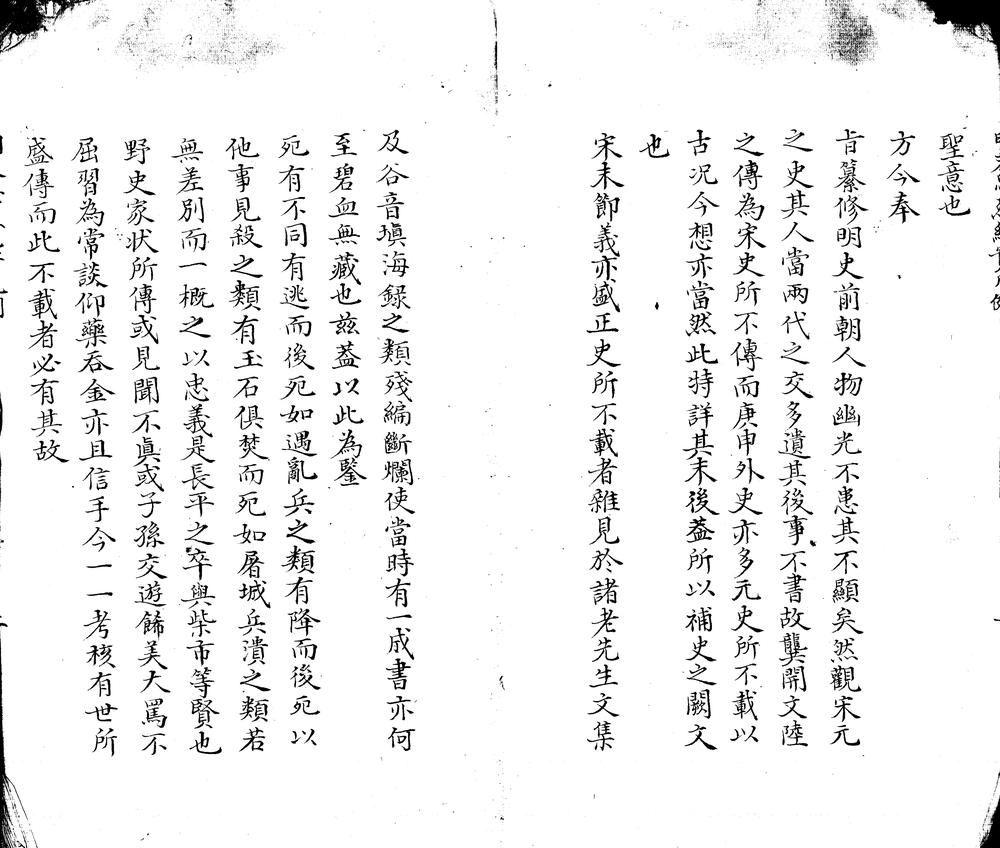 聖意也
方今奉
旨纂修明史前朝人物幽光不患其不顯矣然觀宋元
之史其人當兩代之交多遺其後事不書故龔開文陸
之傳為宋史所不傳而庚申外史亦多元史所不載以
古况今想亦當然此特詳其末後葢所以補史之闕文
也
宋末節義亦盛正史所不載者雜見於諸老先生文集
及谷音塡海録之類殘編斷爛使當時有一成書亦何
至碧血無藏也玆葢以此為鑒
死有不同有逃而後死如遇亂兵之類有降而後死以
他事見殺之類有玉石俱焚而死如屠城兵潰之類若
無差別而一概之以忠義是長平之卒與柴市等賢也
野史家状所傳或見聞不眞或子孫交遊餙美大罵不
屈習為常談仰藥吞金亦且信手今一一考核有世所
盛傳而此不載者必有其故